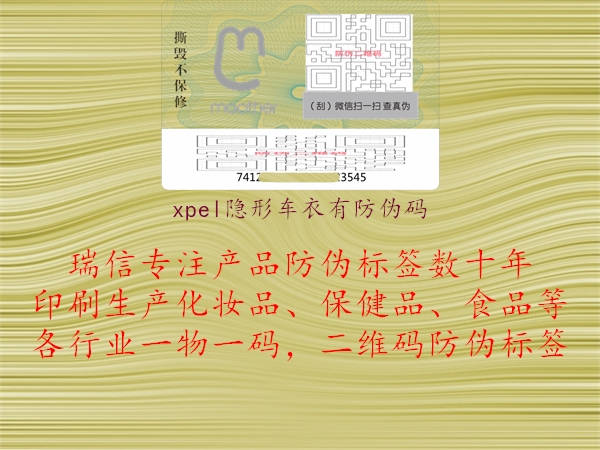 撕毁不保修
防伪二维码
(刮)微信扫一扫 查真伪
7412
3545
xpel隐形车衣有防伪码
瑞信专注产品防伪标签数十年
印刷生产化妆品、保健品、食品等
各行业一物一码，二维码防伪标签